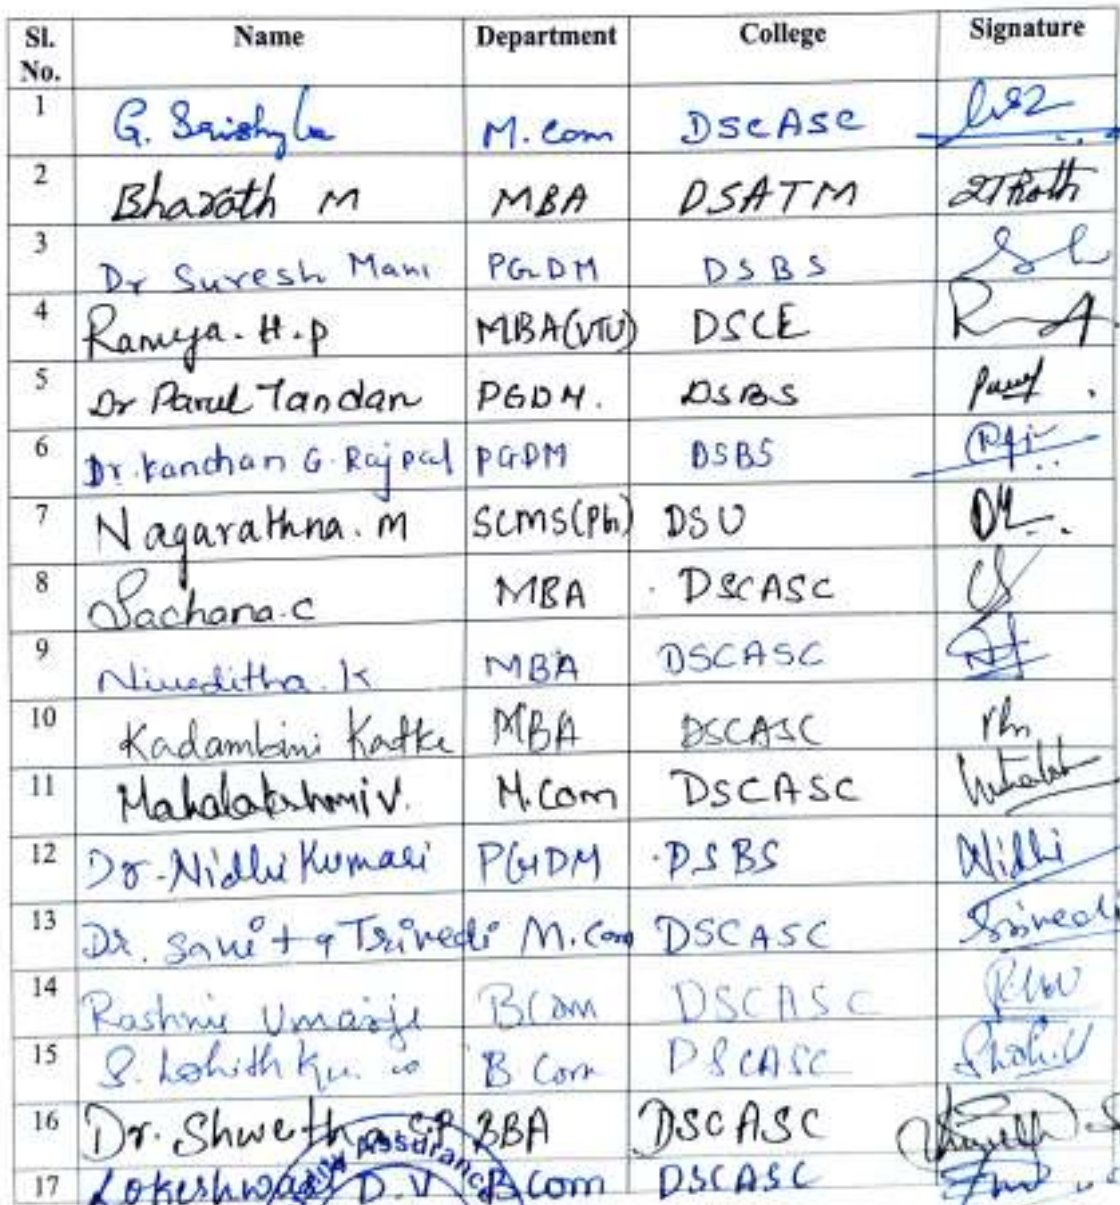 Sl. No. Name Department College Signature
1 G. M. Com DSCASC
2 Bharath M MBA DSATM
3 Dr Suresh Mani PGDM DSBS
4 Ramya. H. P MBA(VTU) DSCE
5 Dr Parul Tandan PGDM. DSBS
6 Dr. Kanchan G. Rajpal PGDM DSBS
7 Nagarathna. M SCMS(PG) DSU
8 Sachana. C MBA DSCASC
9 Niveditha. K MBA DSCASC
10 Kadambini Katke MBA DSCASC
11 Mahalakshmi V. M. Com DSCASC
12 Dr. Nidhi Kumari PGDM DSBS Nidhi
13 Dr. Savita Trivedi M. Com DSCASC Trivedi
14 Rashmi Umarji B Com DSCASC
15 S. Lohith B. Com DSCASC
16 Dr. Shwetha BBA DSCASC
17 Lokeshwari D. V B Com DSCASC
Assurance